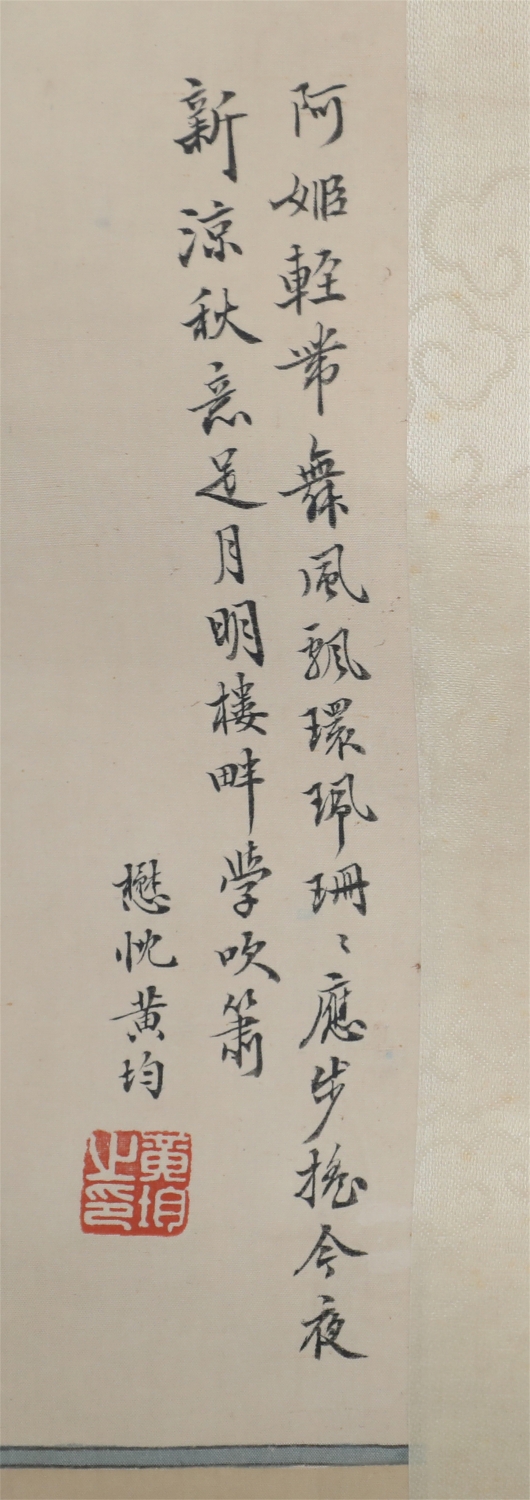 阿姬輕帶舞風飄環珮珊〻應步搖今夜
新涼秋意足月明樓畔學吹簫
懋忱黃均
黃均之印